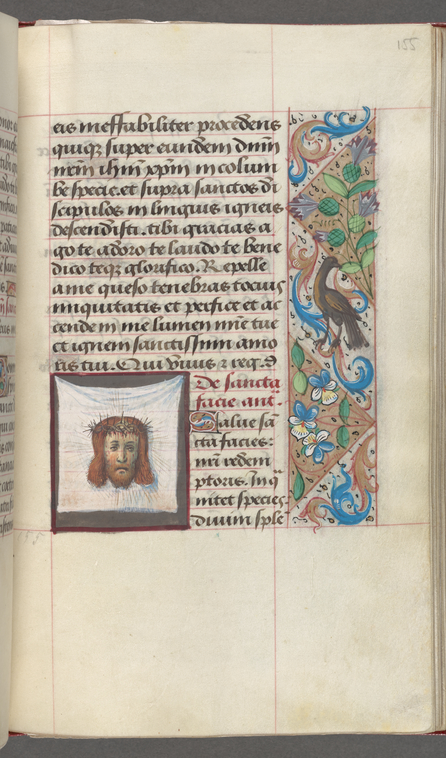 155
eis ineffabiliter procedens
quiqʒ super eundem dnm̄
nr̄m ihm̄ xpm̄ in colum
be specie. et supra sanctos di
scipulos in linguis igneis
descendisti. tibi gracias a
go te adoro te laudo te bene
dico teqʒ glorifico. Repelle
a me queso tenebras tocius
iniquitatis et perfice et ac
cende in me lumen mīe tue
et ignem sanctissimi amo
ris tui. Qui viuis ⁊ reg.
De sancta
facie ant.
Salue sā
cta facies:
nr̄i redem
ptoris. In q̄
nitet species
diuini sple